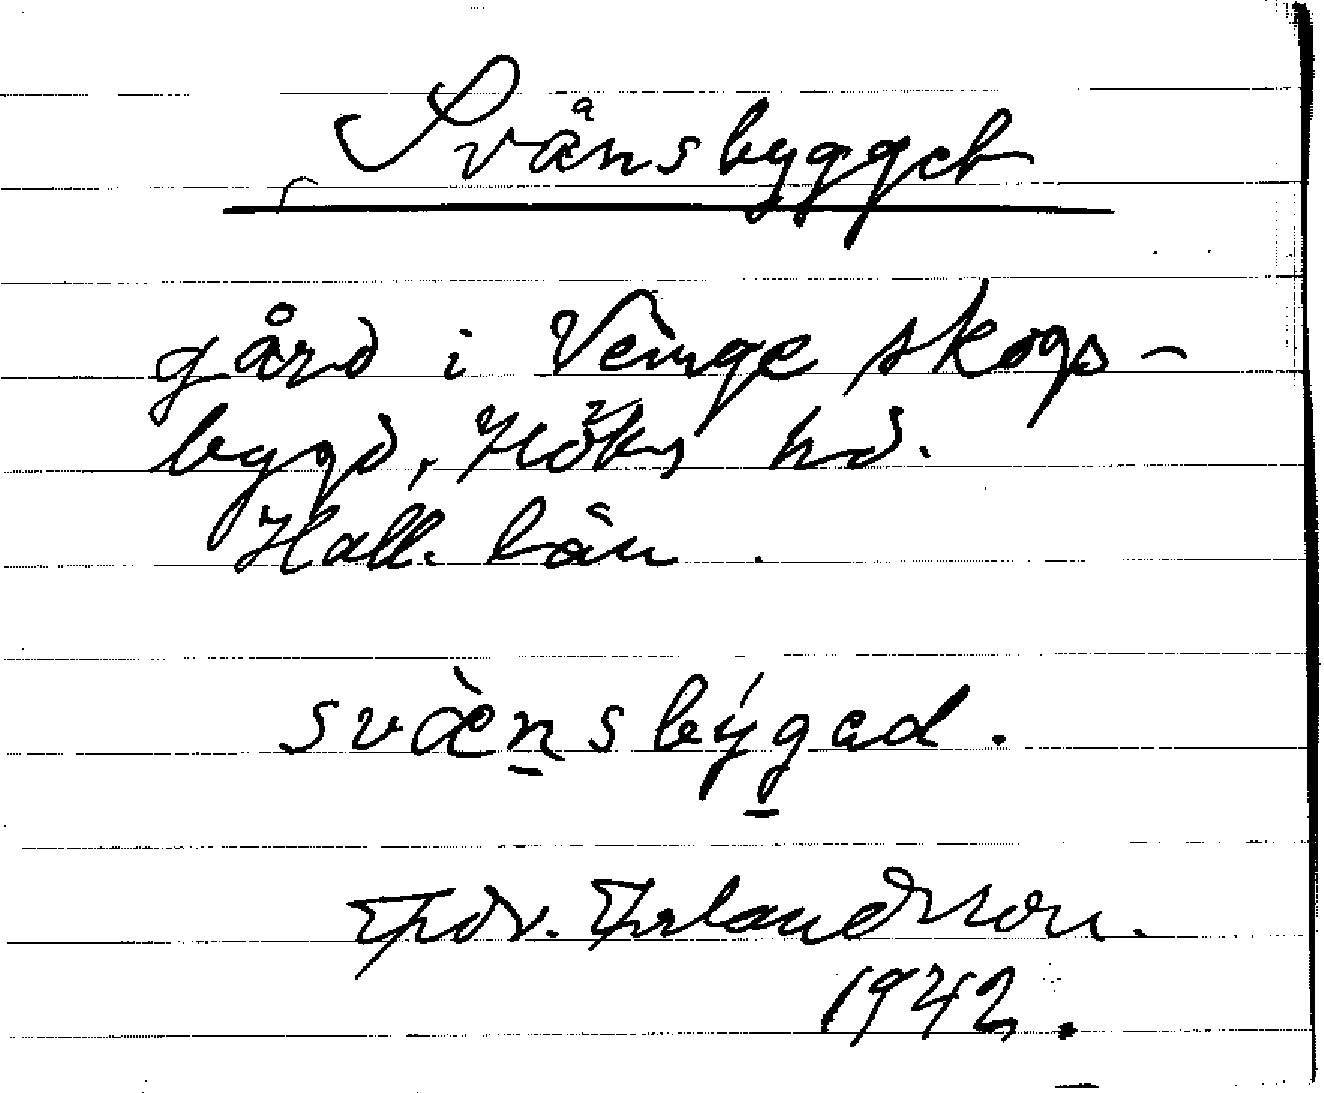 Svänsbygget
gård i Veinge skogs-
bygd, Höks hd.
Hall. län.
svæ̀nsbýgad.
Edv. Erlandsson.
1942.